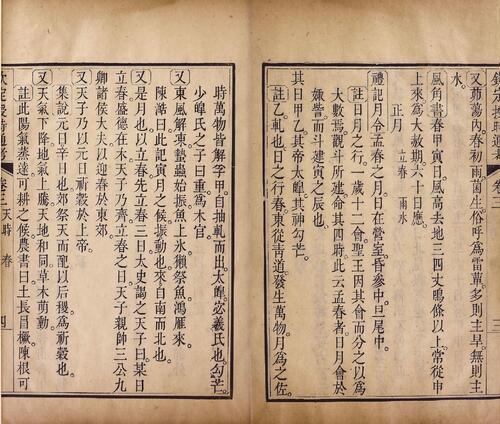 欽定授時通考 卷三
又茆蕩內春初雨菌生俗呼爲雷蕈多則主旱無則主
水
風角書春甲寅日風高去地三四丈鳴條以上常從申
上來爲大赦期六十日應
正月
立春 雨水
禮記月令孟春之月日在營室昏參中旦尾中
註日月之行一歲十二會聖王因其會而分之以爲
大數焉觀斗所建命其四時此云孟春者日月會於
娵訾而斗建寅之辰也
其日甲乙其帝太皥其神勾芒
註乙軋也日之行春東從青道發生萬物月爲之佐
時萬物皆解孚甲自抽軋而出太皥宓羲氏也勾芒
少皥氏之子曰重爲木官
又東風解凍蟄蟲始振魚上氷獺祭魚鴻雁來
陳澔曰此記寅月之候振動也來自南而北也
又是月也以立春先立春三日太史謁之天子曰某日
立春盛德在木天子乃齊立春之日天子親帥三公九
卿諸侯大夫以迎春於東郊
又天子乃以元日祈穀於上帝
集說元日辛日也郊祭天而配以后稷爲祈穀也
又天氣下降地氣上騰天地和同草木萌動
註此陽氣蒸達可耕之候農書曰土長冒橛陳根可
欽定授時通考 卷三 天時 春 四